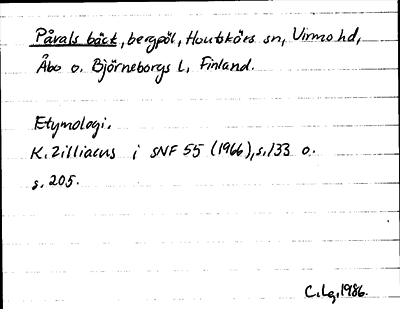 Påvals böte, bergpöl, Houtskärs sn, Virmo hd,
Åbo o. Björneborgs l, Finland.
Etymologi.
K. Zilliacus i SNF 55 (1966), s. 133 o.
s. 205.
C. Lg. 1986.